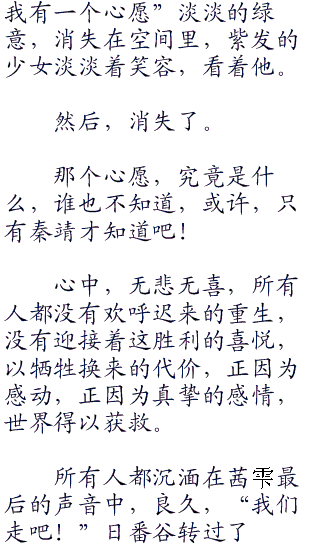 我有一个心愿”淡淡的绿
意，消失在空间里，紫发的
少女淡淡着笑容，看着他。
然后，消失了。
那个心愿，究竟是什
么，谁也不知道，或许，只
有秦靖才知道吧！
心中，无悲无喜，所有
人都没有欢呼迟来的重生，
没有迎接着这胜利的喜悦，
以牺牲换来的代价，正因为
感动，正因为真挚的感情，
世界得以获救。
所有人都沉湎在茜雫最
后的声音中，良久，“我们
走吧！”日番谷转过了